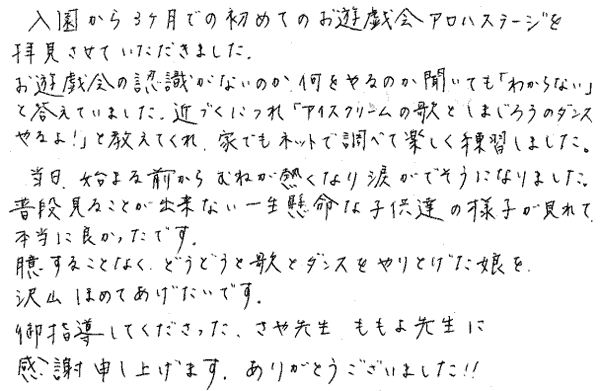 入園から3ヶ月での初めてのお遊戯会アロハステージを
拝見させていただきました。
お遊戯会の認識がないのか、何をやるのか聞いても「わからない」
と答えていました。近づくにつれ「アイスクリームの歌としまじろうのダンス
やるよ!」と教えてくれ、家でもネットで調べて楽しく練習しました。
当日、始まる前からむねが熱くなり涙がでそうになりました。
普段見ることが出来ない一生懸命な子供達の様子が見れて、
本当に良かったです。
臆することなく、どうどうと歌とダンスをやりとげた娘を、
沢山ほめてあげたいです。
御指導してくださった、さや先生 ももよ先生に
感謝申し上げます。ありがとうございました!!